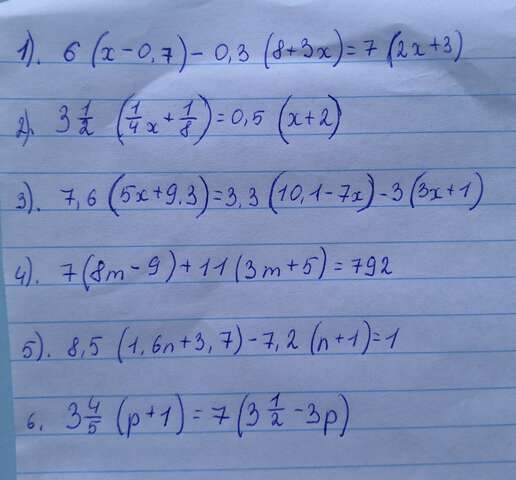 1). 6 (x-0,7)-0,3 (8+3x)=7 (2x+3)
2). 3 1/2 (1/4x+1/8)=0,5 (x+2)
3). 7,6 (5x+9,3)=3,3 (10,1-7x)-3 (3x+1)
4). 7(8m-9)+11(3m+5)=792
5). 8,5 (1,6n+3,7)-7,2 (n+1)=1
6. 3 4/5 (p+1)=7 (3 1/2-3p)